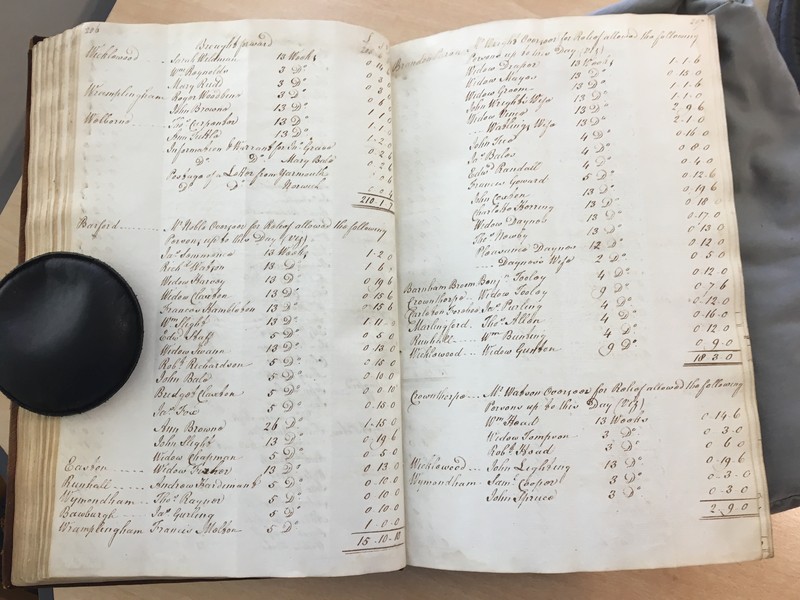 206
Brought forward
Wicklewood Sarah Wickman 13 Weeks
Wm Reynolds 3 Do
Mary Rudd 3 Do
Wramplingham Roger Woodbine 3 Do
John Browne 13 Do
Welborne Carpenter 13 Do
Ann Tuttle 13 Do
Information & Warrant for Jas Green
Do Do Mary Bale
Postage of a Letter from Yarmouth
Do Do Norwich
210-1-
Barford Mr Noble Overseer for Relief allowed the following
Persons up to this Day (Vizt)
Jas Simmance 13 Weeks 1-2-0
Richd Watson 13 Do 1-6-
Widow Harvey 13 Do 0-19-6
Widow Clawton 13 Do 0-15-6
Frances Hambleton 13 Do 0-15-6
Wm Slight 13 Do 1-11-0
Edwd Staff 5 Do 0-5-0
Widow Swann 13 Do 0-13-0
Robt Richardson 5 Do 0-15-0
John Bale 5 Do 0-10-0
Bridget Clawton 5 Do 0-10-0
Jas Fox 5 Do 0-15-0
Ann Browne 26 Do 1-15-0
John Slight 13 Do 0-19-6
Widow Chapman 5 Do 0-5-0
Easton Widow 13 Do 0-13-0
Runhall Andrew Hardement 5 Do 0-10-0
Wymondham Thos Raynor 5 Do 0-10-0
Bawburgh Jas Gurling 5 Do 0-10-0
Wramplingham Francis Melton 5 Do 1-0-0
15-10-10
207
Brandon Mr Wright Overseer for Relief allowed the following
Persons up to this Day (Vizt)
Widow Draper 13 Weeks 1-1-6
Widow Mayes 13 Do 0-15-0
Widow Groom 13 Do 1-1-0
John Wrights Wife 13 Do 1-1-0
Widow 13 Do 2-9-6
Watlings Wife 13 Do 2-1-0
John 4 Do 0-16-0
Jas Bales 4 Do 0-8-0
Edwd Randall 4 Do 0-4-0
Frances Goward 5 Do 0-12-6
John Cosben 13 Do 0-19-6
Charlotte Herring 13 Do 0-18-
Widow Daynes 13 Do 0-17-0
Thos Newby 13 Do 0-13-0
Pleasance Daynes 12 Do 0-12-0
Daynes's Wife 2 Do 0-5-0
Barnham Broom Benjn Tooley 4 Do 0-12-0
Crownthorpe Widow Tooley 9 Do 0-7-6
Carleton Forehoe Jas Purling 4 Do 0-12-0
Marlingford Thos Allen 4 Do 0-16-0
Runhall Wm Bunning 4 Do 0-12-0
Wicklewood Widow Gunton 9 Do 0-9-0
18-3-0
Crownthorpe Mr Watson Overseer for Relief allowed the following
Persons up to this Day (Vizt)
Wm Head 13 Weeks 0-14-6
Widow Tompson 3 Do 0-3-0
Robt Head 3 Do 0-6-0
Wicklewood John Lightning 13 Do 0-19-6
Wymondham Saml Cooper 3 Do 0-3-0
John Spruce 3 Do 0-3-0
2-9-0